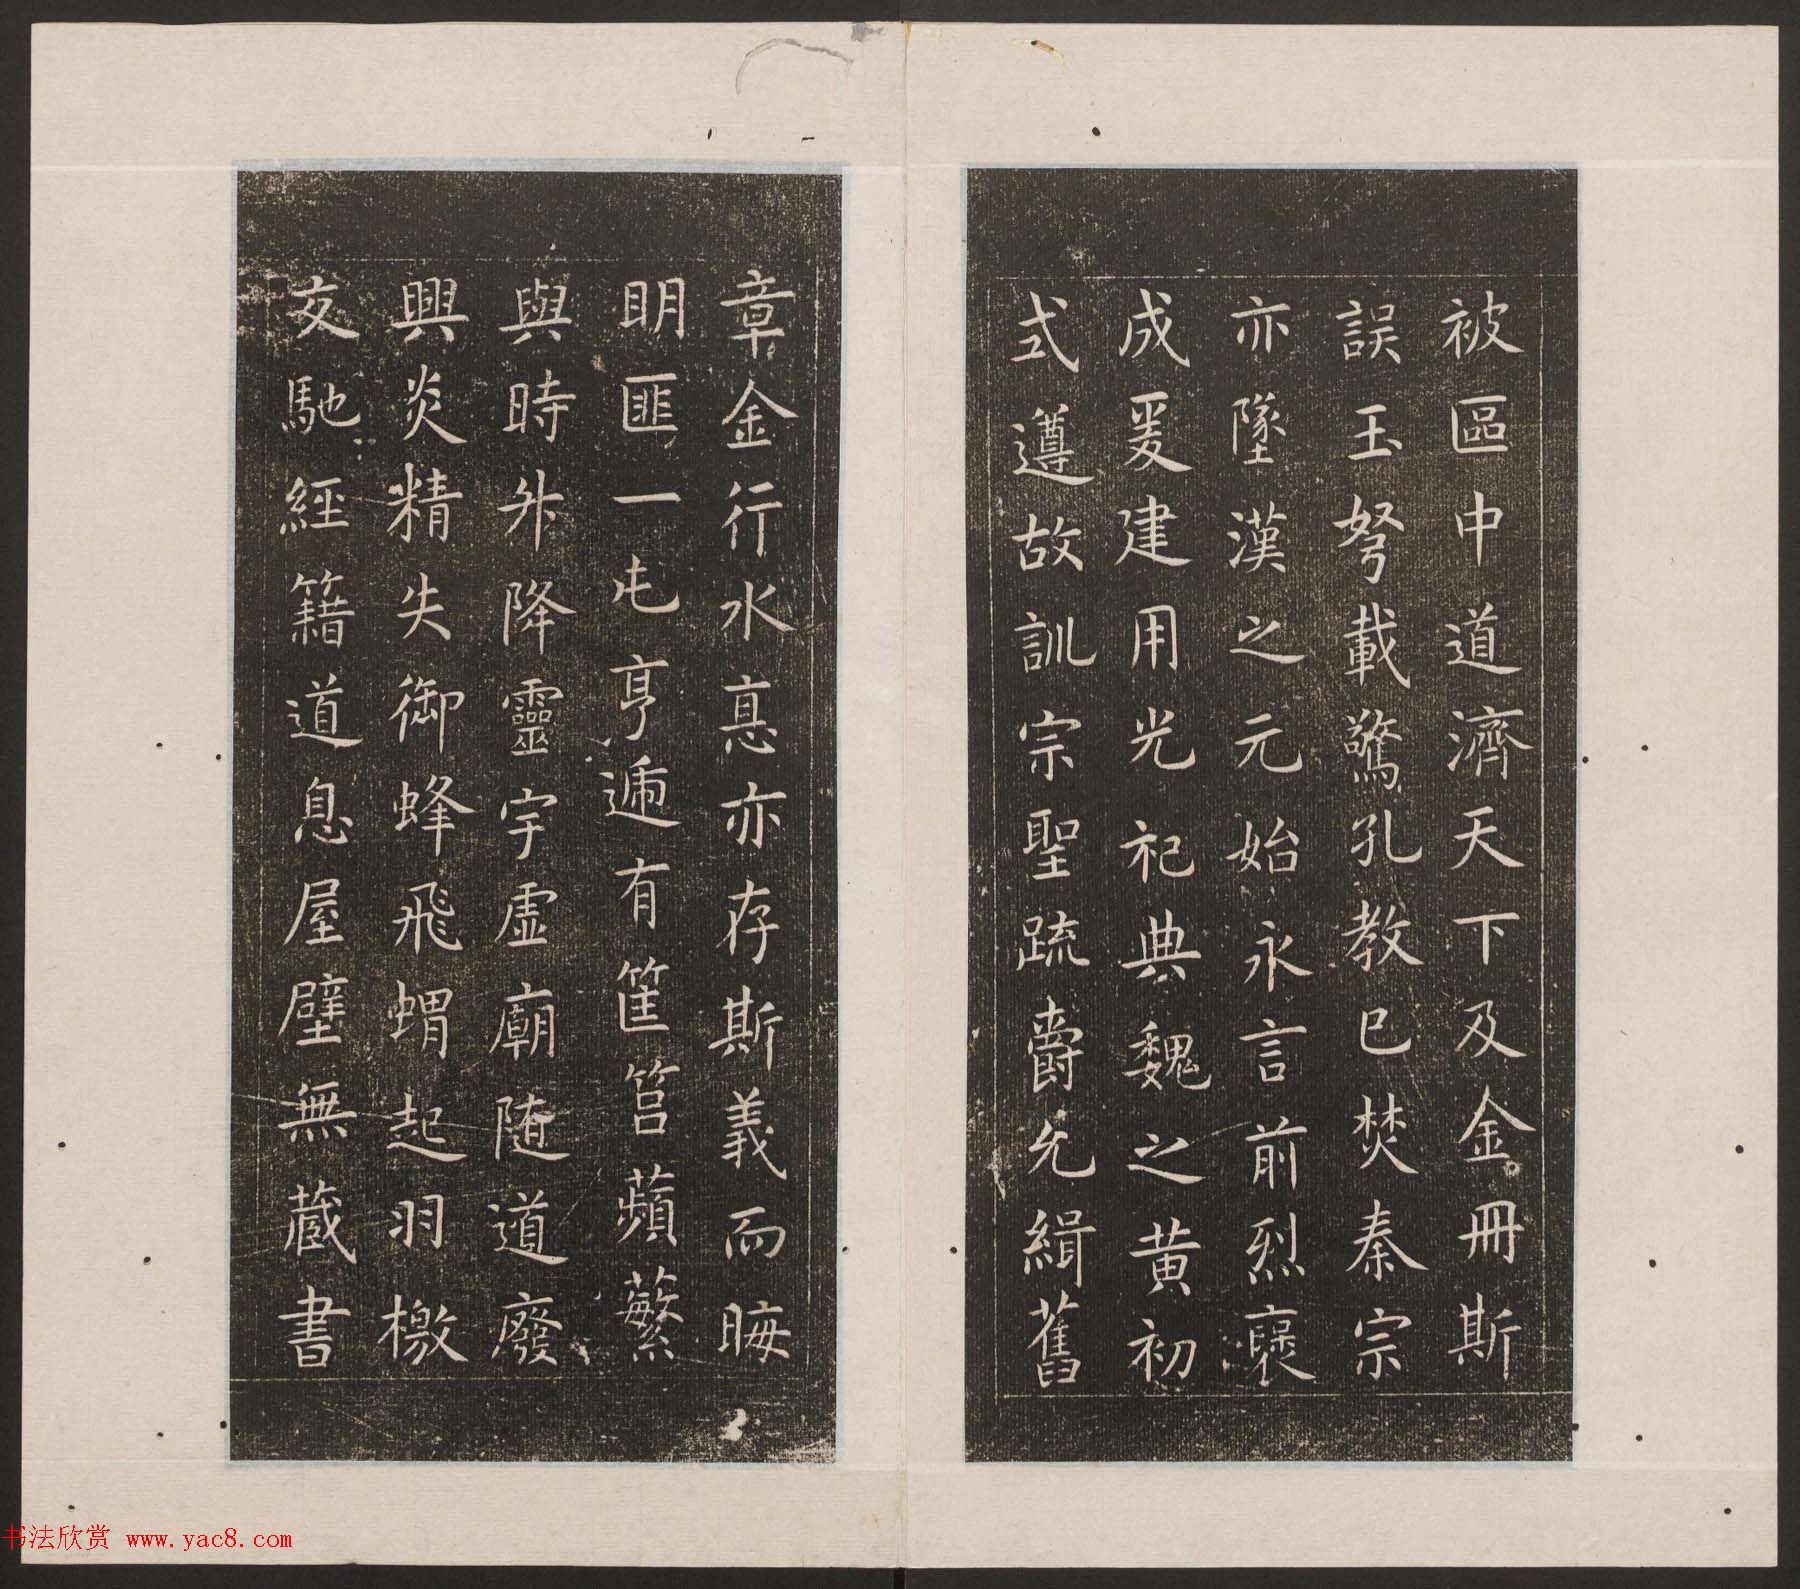 被區中道濟天下及金冊斯
誤玉弩載驚孔教已焚秦宗
亦墜漢之元始永言前烈褒
成爰建用光祀典魏之黄初
式遵故訓宗聖疏爵允緝舊
章金行水悳亦存斯義而晦
明匪一屯亨遞有筐筥蘋蘩
與時升降靈宇虛廟随道廢
興炎精失御蜂飛蝟起羽檄
交馳經籍道息屋壁無蔵書
书法欣赏 www.yac8.com